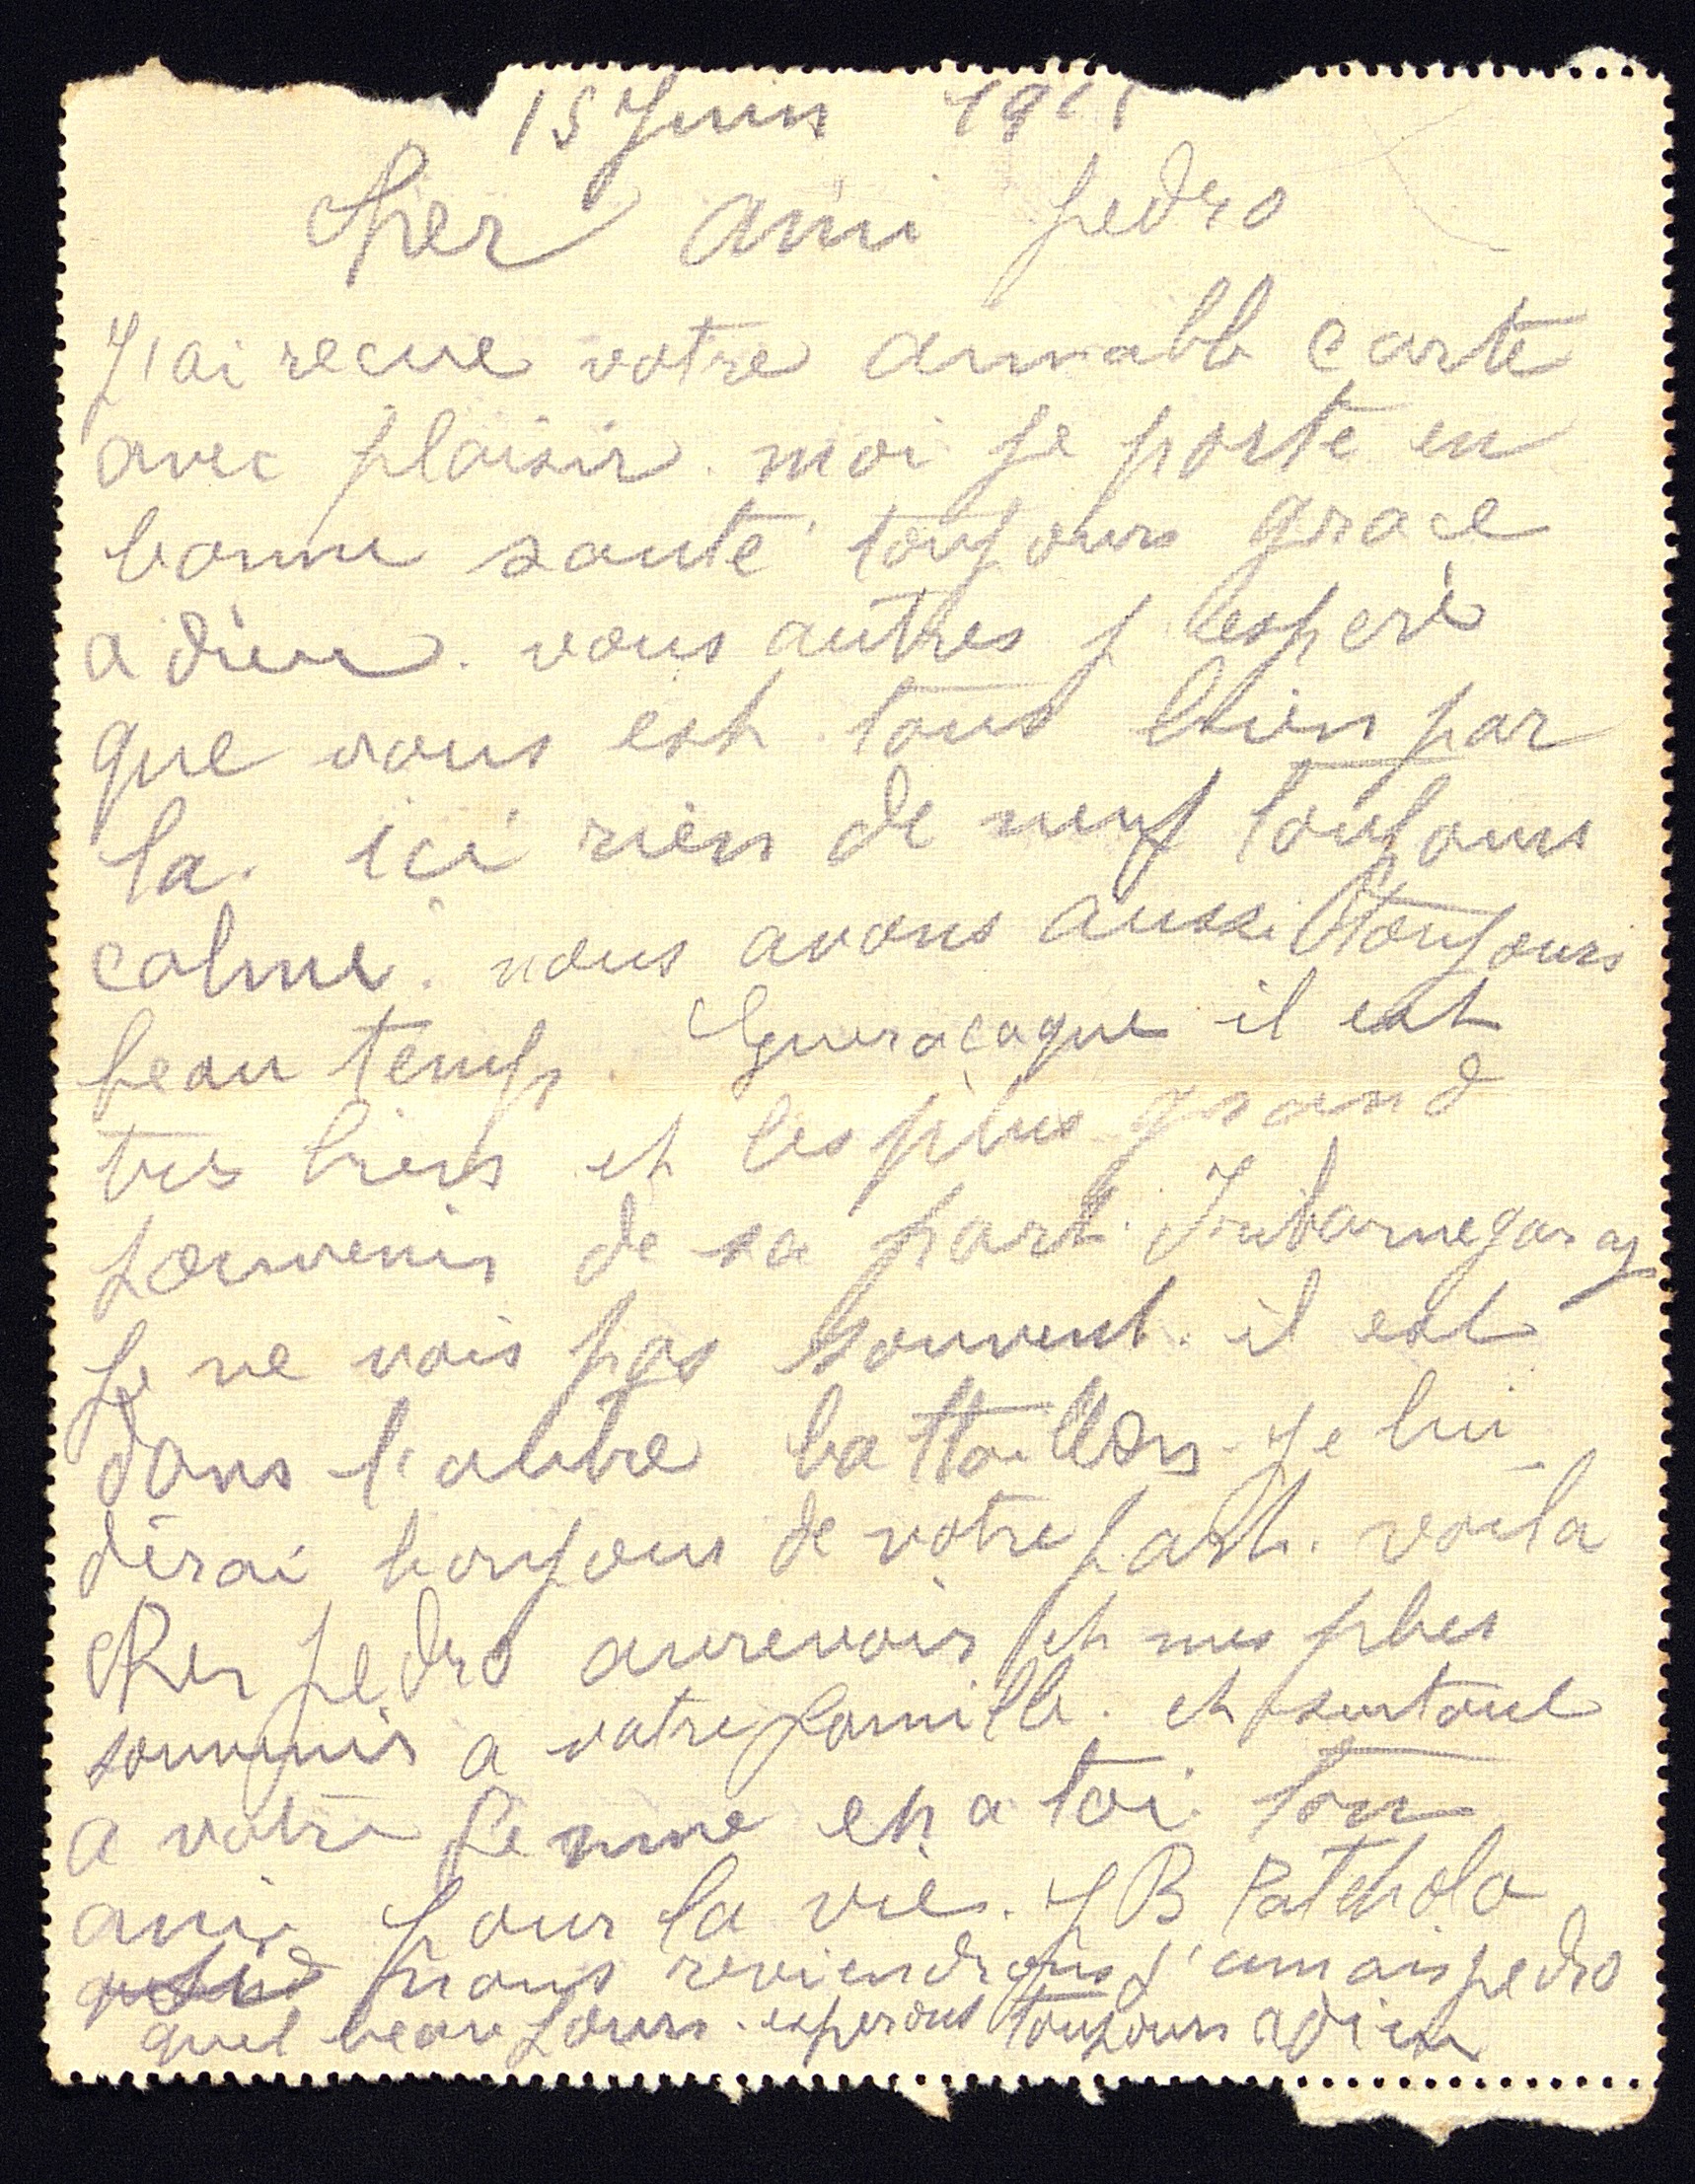 15 Juin 191
Cher ami pedro
J'ai recue votre aimabll carte
avec plaisir. moi je porte en
bonne santé toujours grace
a dieu. vous autres j espere
que vous est tous bien par
la. ici rien de neuf toujours
calme. nous avons aussi toujours
beau temps. il est
tres bien et les plus grand
souvenir de sa part. Iribarnegaray
je ne vois pas souvent. il est
dans l'autre battaillon. je lui
dirai bonjour de votre part. voila
cher pedro aurevoir et mes plus
souvenir a votre famille. et surtout
a votre femme et a toi ton
ami pour la vie. J B
nous reviendrons j'amais pedro
quel beau jour. esperons toujours adieu